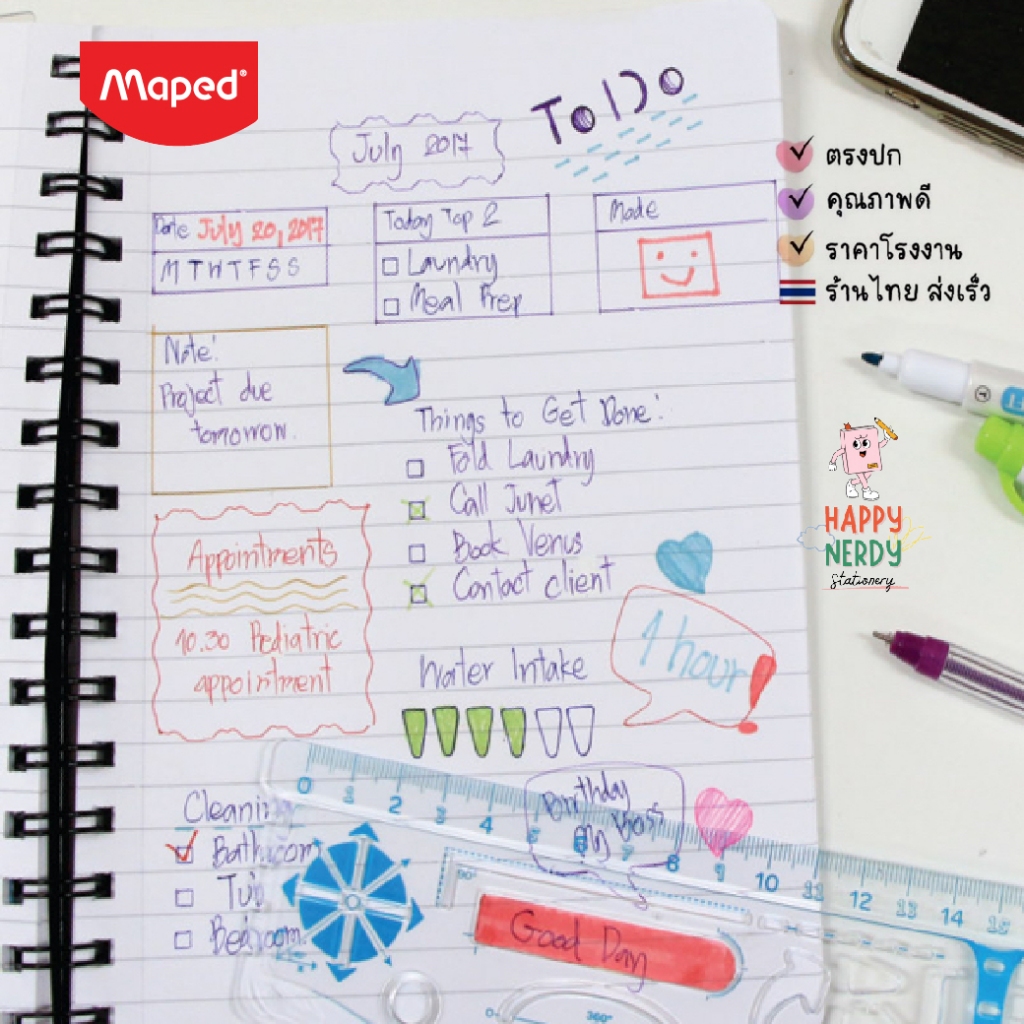 Maped®
To Do
July 2017
ตรงปก
คุณภาพดี
ราคาโรงงาน
ร้านไทย ส่งเร็ว
Date July 20, 2017
M T W T F S S
Today Top 2
Laundry
Meal Prep
Mode
Note:
Project due
tomorrow.
Things to Get Done:
Fold Laundry
Call Junet
Book Venus
Contact client
HAPPY
NERDY
Stationery
Appointments
10.30 Pediatric
appointment
1 hour!
Water Intake
Cleaning
Bathroom
Tub
Bedroom
Birthday
My Boss
0 1 2 3 4 5 6 7 8 9 10 11 12 13 14 15
90°
Good Day
0° 360°